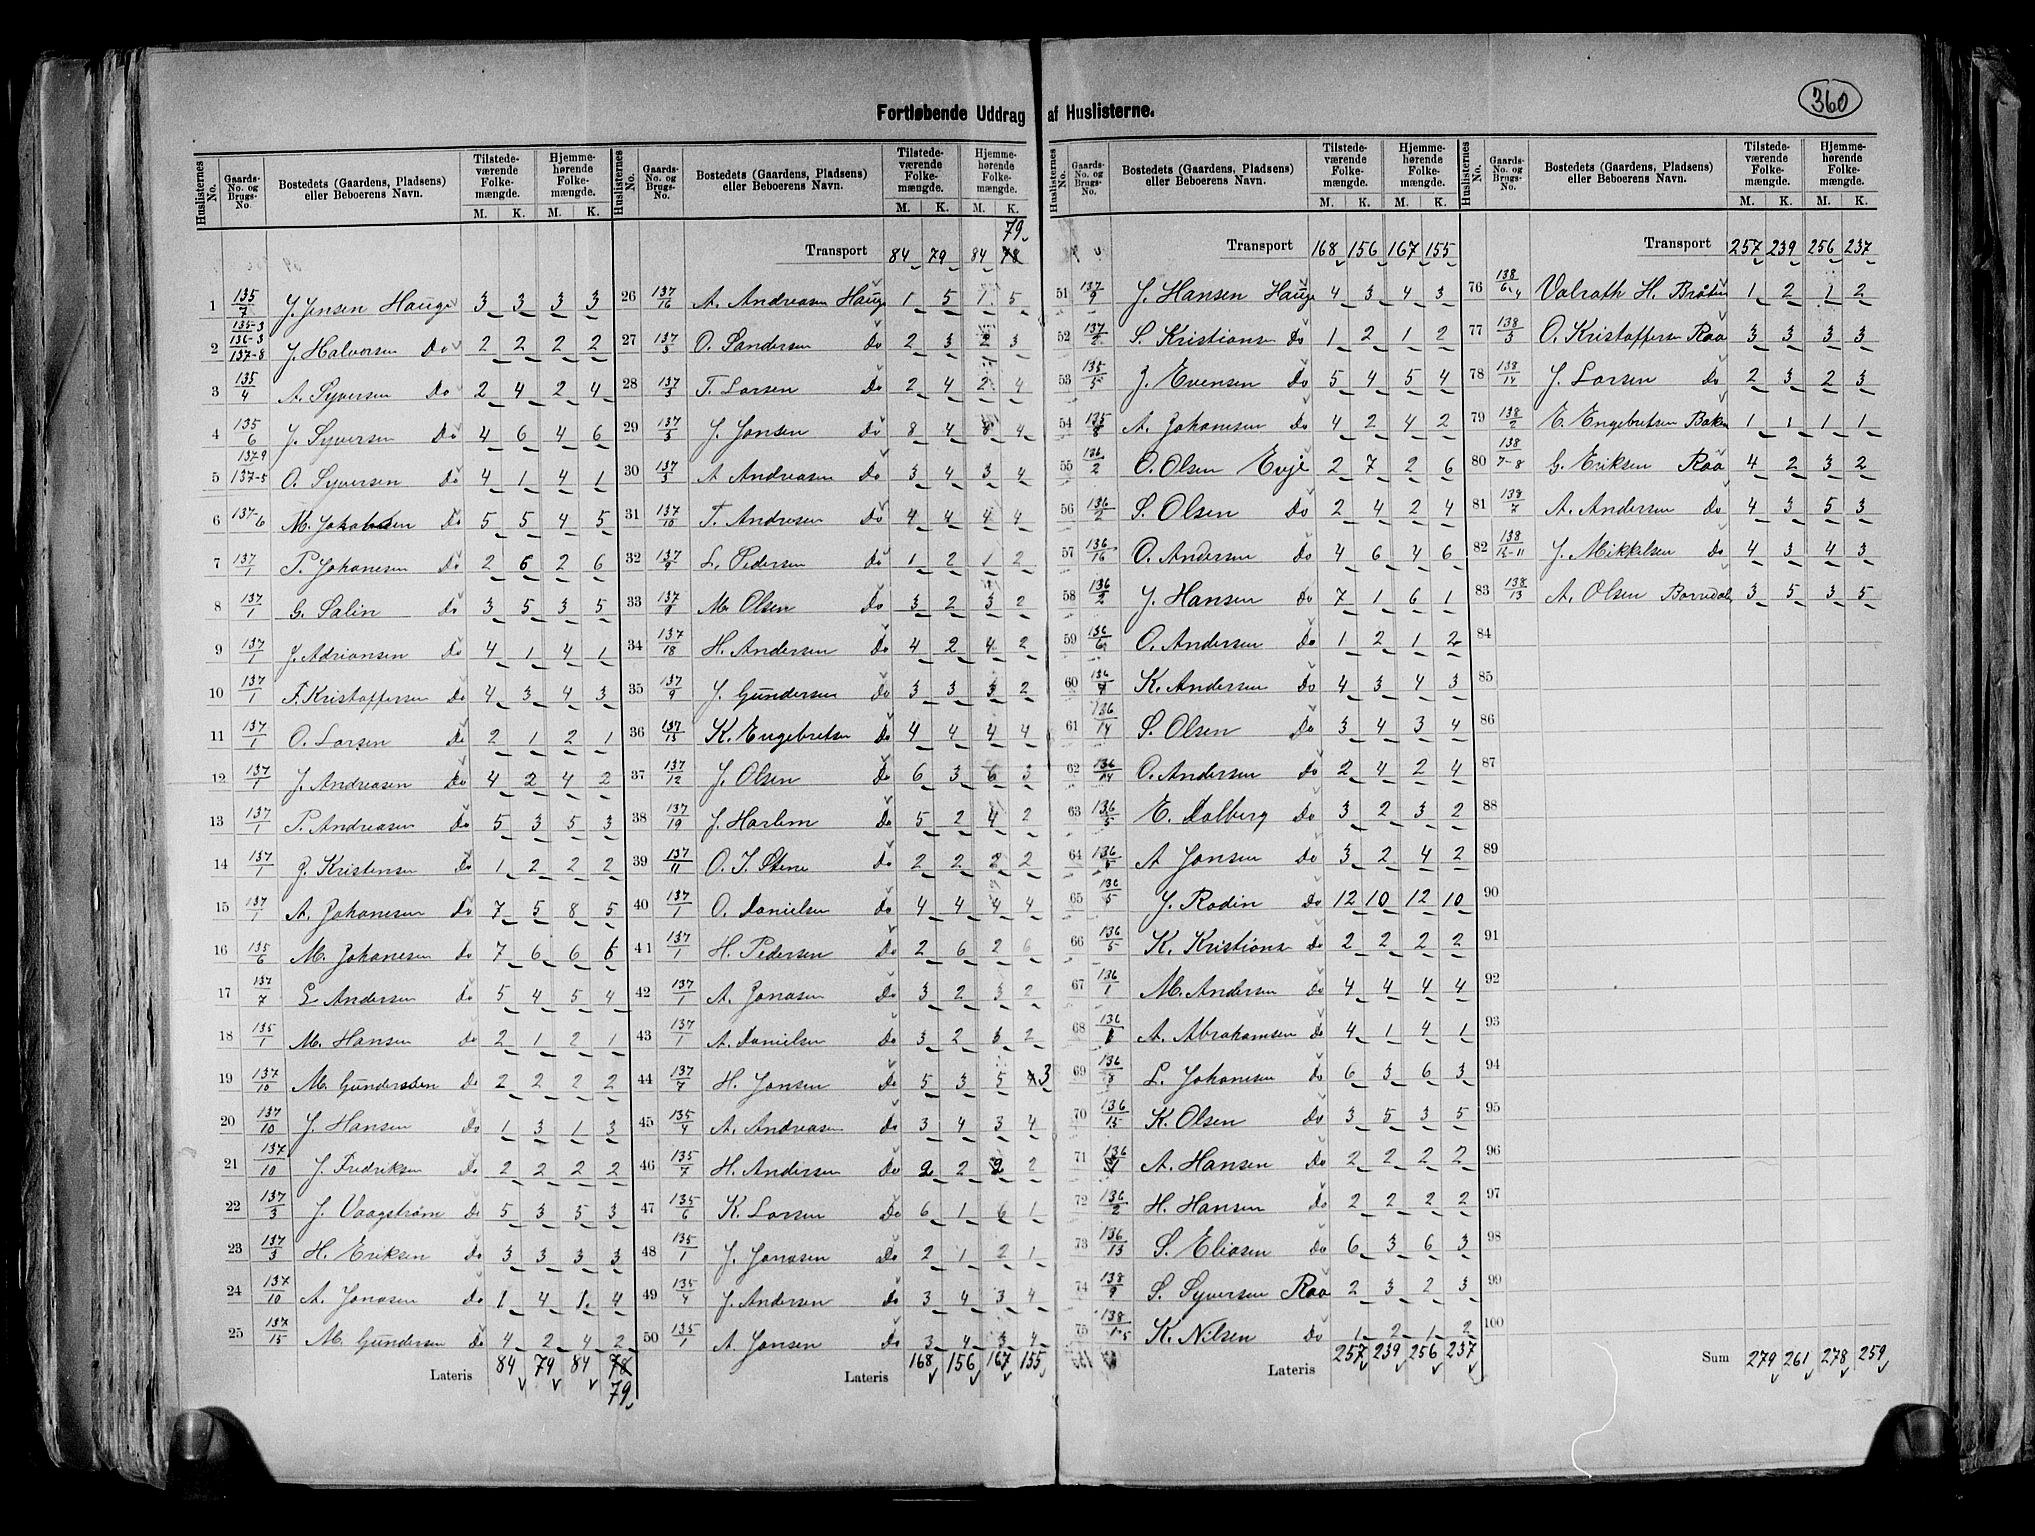 360
Fortløbende Uddrag af Huslisterne.
Huslisternes No. Gaards-No. og Brugs-No. Bostedets (Gaardens, Pladsens) eller Beboerens Navn. Tilstedeværende Folkemængde. M. K. Hjemmehørende Folkemængde. M. K.
1 135/7 J. Jensen Hauge 3 3 3 3
2 135-3 136-3 137-8 J. Halvorsen Do 2 2 2 2
3 135/4 A. Syversen Do 2 4 2 4
4 135/6 J. Syversen Do 4 6 4 6
5 137-9 137-5 O. Syversen Do 4 1 4 1
6 137-6 M. Do 5 5 4 5
7 137/1 T. Johanesen Do 2 6 2 6
8 137/1 G. Salin Do 3 5 3 5
9 137/1 J. Adriansen Do 4 1 4 1
10 137/1 F. Kristoffersen Do 4 3 4 3
11 137/1 O. Larsen Do 2 1 2 1
12 137/1 J. Andreasen Do 4 2 4 2
13 137/1 P. Andreasen Do 5 3 5 3
14 137/1 J. Kristensen Do 1 2 2 2
15 137/1 A. Johanesen Do 7 5 8 5
16 135/6 M. Johanesen Do 7 6 6 6
17 137/7 Andersen Do 5 4 5 4
18 135/1 M. Hansen Do 2 1 2 1
19 137/10 M. Gundersen Do 2 2 2 2
20 137/10 J. Hansen Do 1 3 1 3
21 137/10 J. Fredriksen Do 2 2 2 2
22 137/3 J. Vaagstrøm Do 5 3 5 3
23 137/3 H. Eriksen Do 3 3 3 3
24 137/10 A. Jonasen Do 1 4 1 4
25 137/15 M. Gundersen Do 4 2 4 2
Lateris 84 79 84 78 79
Huslisternes No. Gaards-No. og Brugs-No. Bostedets (Gaardens, Pladsens) eller Beboerens Navn. Tilstedeværende Folkemængde. M. K. Hjemmehørende Folkemængde. M. K.
Transport 84 79 84 78 79
26 137/16 A. Andreasen Hauge 1 5 1 5
27 137/3 O. Sandersen Do 2 3 2 3
28 137/3 T. Larsen Do 2 4 2 4
29 137/3 J. Jonsen Do 8 4 8 4
30 137/3 A Andreasen Do 3 4 3 4
31 137/10 T. Andresen Do 4 4 4 4
32 137/9 L. Pedersen Do 1 2 1 2
33 137/9 M. Olsen Do 3 2 3 2
34 137/18 H. Andersen Do 4 2 4 2
35 137/9 J. Gundersen Do 3 3 3 2
36 137/13 K. Engebretsen Do 4 4 4 4
37 137/12 J. Olsen Do 6 3 6 3
38 137/19 J. Harlem Do 5 2 4 2
39 137/11 O. J. Stene Do 2 2 2 2
40 137/1 O. Danielsen Do 4 4 4 4
41 137/1 H. Pedersen Do 2 6 2 6
42 137/1 A. Jonasen Do 3 2 3 2
43 137/1 A. Danielsen Do 3 2 3 2
44 137/7 H. Jonsen Do 5 3 5 3
45 135/4 A. Andreasen Do 3 4 3 4
46 135/7 H. Andersen Do 2 2 2 2
47 135/6 K. Larsen Do 6 1 6 1
48 135/1 J. Jonasen Do 2 1 2 1
49 135/4 J. Andersen Do 3 4 3 4
50 135/1 A. Jonsen Do 3 4 3 4
Lateris 168 156 167 155
No. Gaards-No. og Brugs-No. Bostedets (Gaardens, Pladsens) eller Beboerens Navn. Tilstedeværende Folkemængde. M. K. Hjemmehørende Folkemængde. M. K.
Transport 168 156 167 155
51 137/9 J. Hansen Hauge 4 3 4 3
52 137/2 S. Kristiansen Do 1 2 1 2
53 135/5 J. Evensen Do 5 4 5 4
54 135/8 A. Johanesen Do 4 2 4 2
55 136/2 O. Olsen Evje 2 7 2 6
56 136/2 S. Olsen Do 2 4 2 4
57 136/16 O. Andersen Do 4 6 4 6
58 136/2 J. Hansen Do 7 1 6 1
59 136/6 O. Andersen Do 1 2 1 2
60 136/7 K. Andersen Do 4 3 4 3
61 136/14 S. Olsen Do 3 4 3 4
62 136/14 O. Andersen Do 2 4 2 4
63 136/5 E. Dalberg Do 3 2 3 2
64 136 A Jonsen Do 3 2 4 2
65 136/5 J. Rodin Do 12 10 12 10
66 136/5 K. Kristians Do 2 2 2 2
67 136/1 M. Andersen Do 4 4 4 4
68 136 A. Abrahamsen Do 4 1 4 1
69 136 L. Johanesen Do 6 3 6 3
70 136/15 K. Olsen Do 3 5 3 5
71 136 A. Hansen Do 2 2 2 2
72 136/2 H. Hansen Do 2 2 2 2
73 136/13 S. Eliasen Do 6 3 6 3
74 138/9 S. Syversen Raa 2 3 2 3
75 138/1-5 K. Nilsen Do 1 2 1 2
Lateris 257 239 256 237
Huslisternes No. Gaards-No. og Brugs-No. Bostedets (Gaardens, Pladsens) eller Beboerens Navn. Tilstedeværende Folkemængde. M. K. Hjemmehørende Folkemængde. M. K.
Transport 257 239 256 237
76 138/6-4 Valrath H. Bråten 1 2 1 2
77 138/3 O. Kristoffersen Raa 3 3 3 3
78 138/14 J. Larsen Do 2 3 2 3
79 138/2 E. Engebretsen Bakn 1 1 1 1
80 138/7-8 G. Eriksen Raa 4 2 3 2
81 138/7 A. Andersen Do 4 3 5 3
82 138/12-11 J. Mikkelsen Do 4 3 4 3
83 138/13 A. Olsen 3 5 3 5
84
85
86
87
88
89
90
91
92
93
94
95
96
97
98
99
100
Sum 279 261 278 259